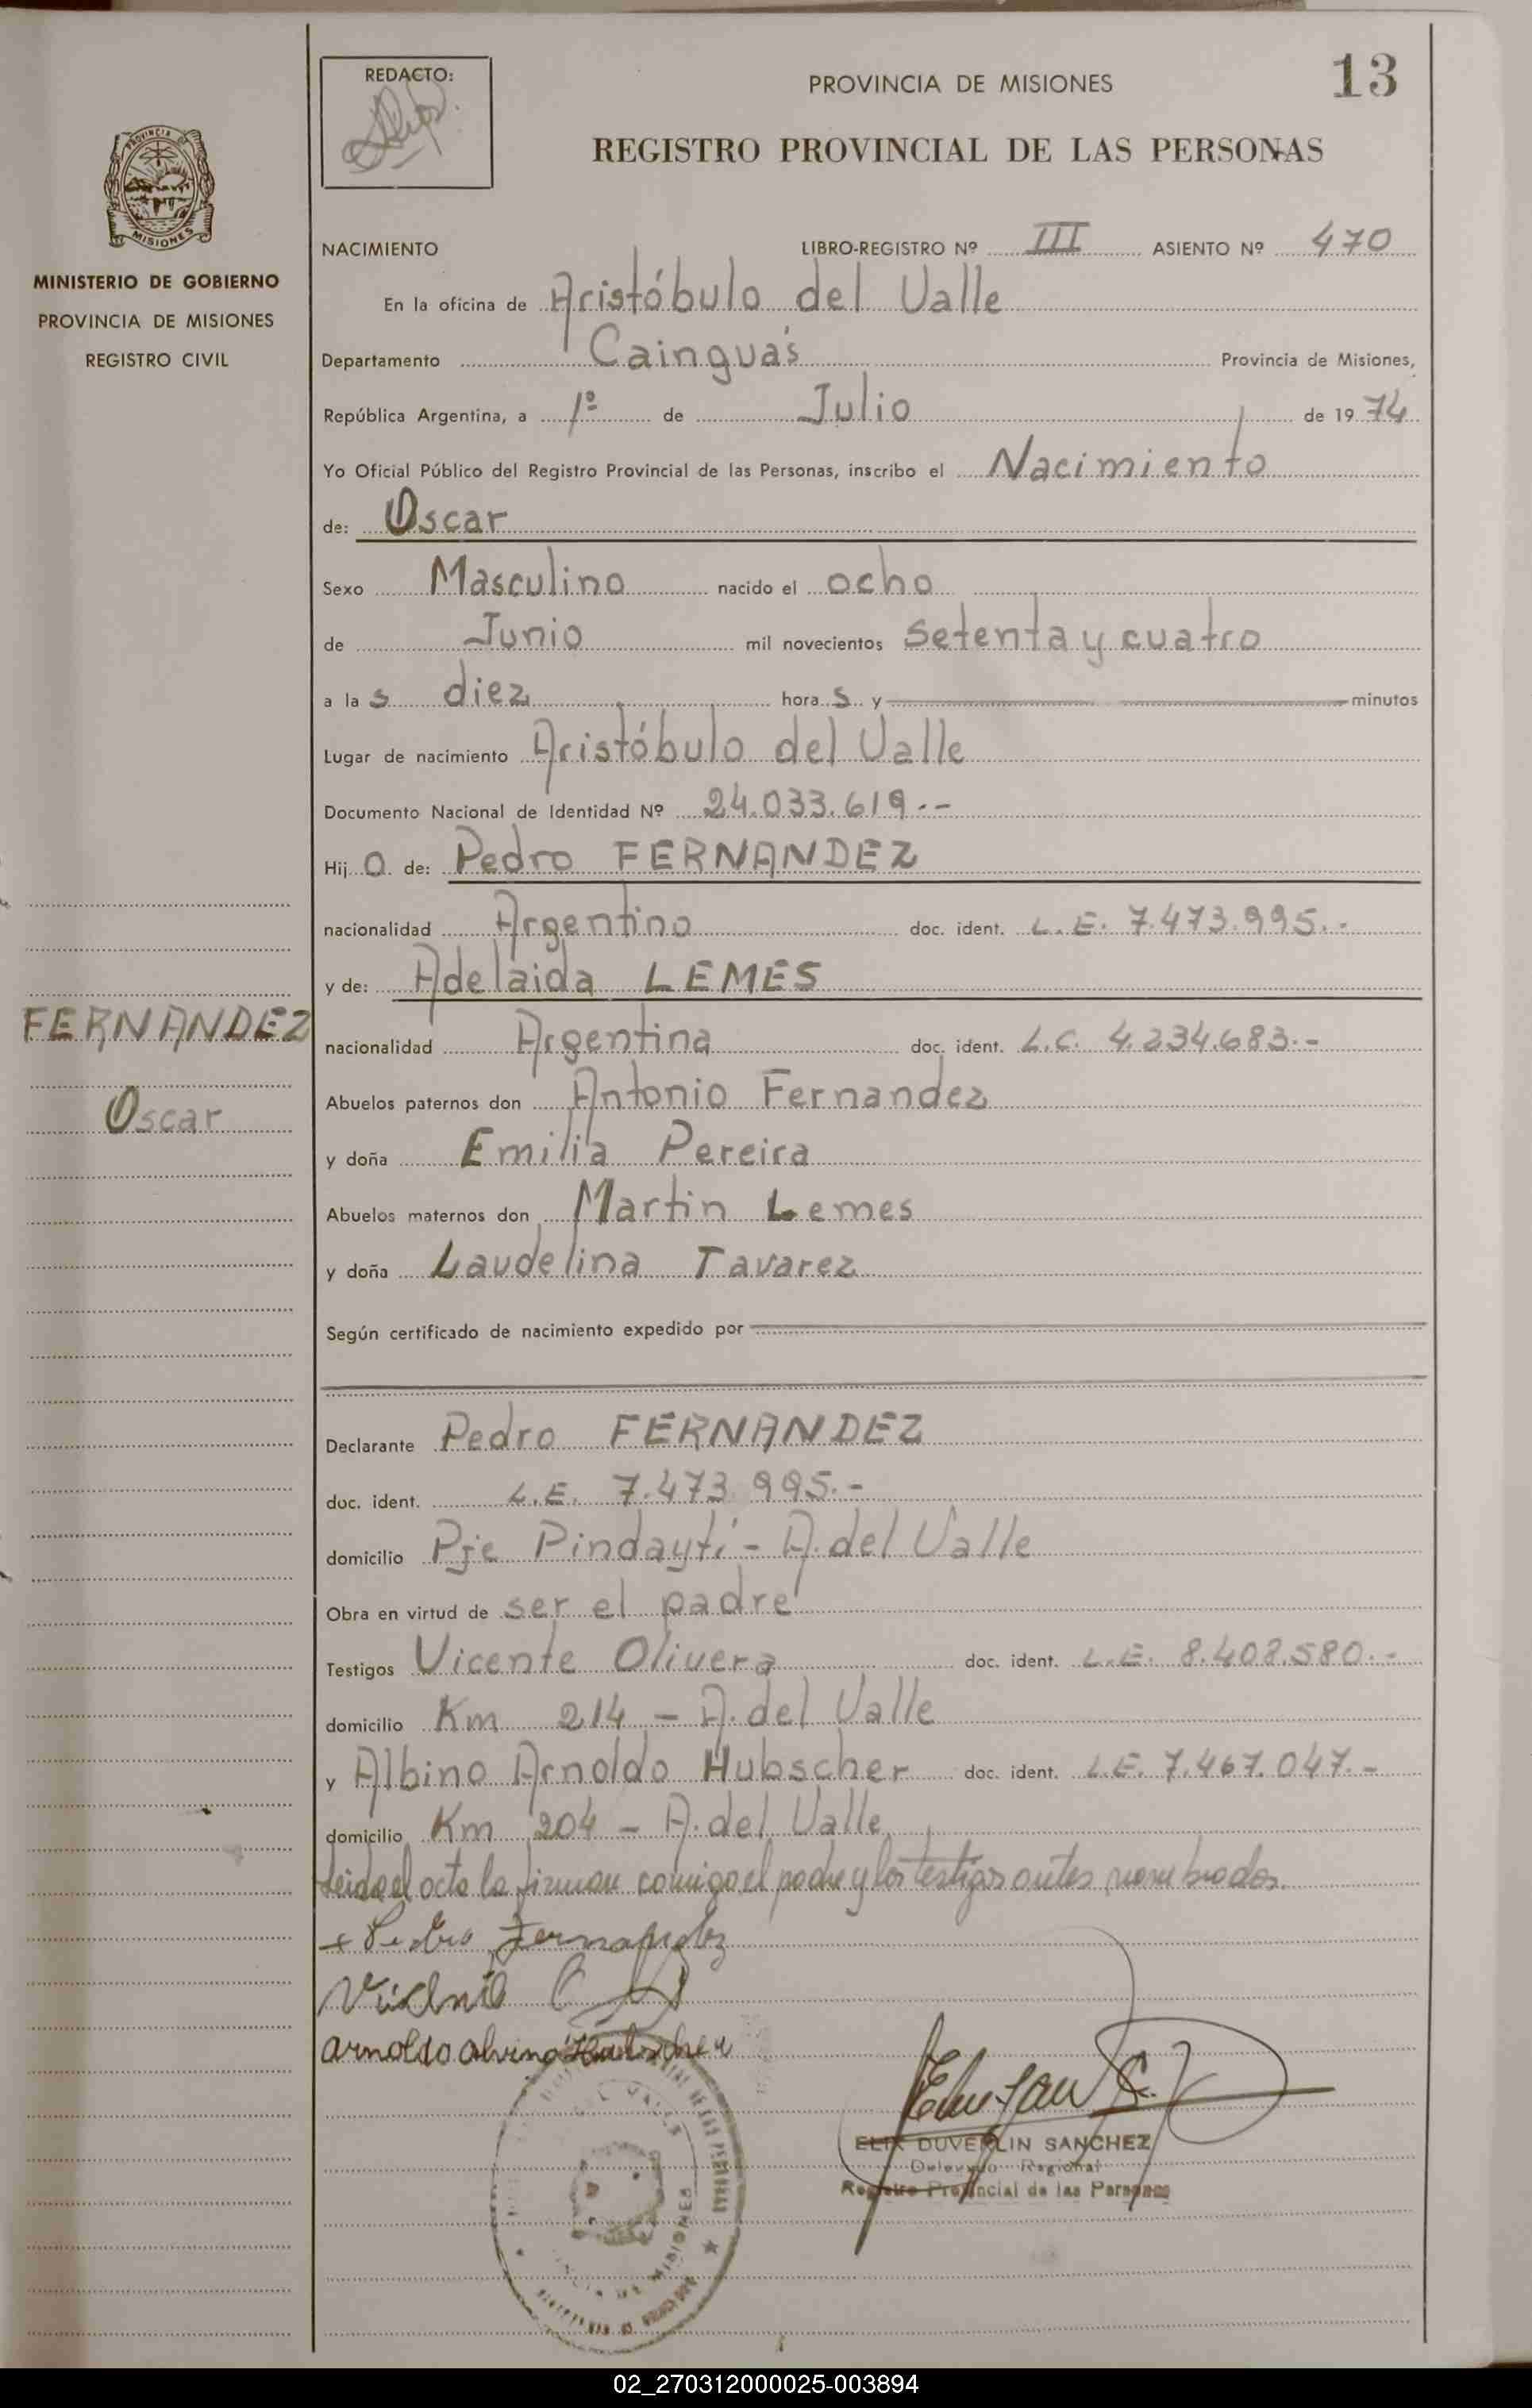 REDACTO:
PROVINCIA DE MISIONES
13
REGISTRO PROVINCIAL DE LAS PERSONAS
PROVINCIA DE
MISIONES
MINISTERIO DE GOBIERNO
PROVINCIA DE MISIONES
REGISTRO CIVIL
NACIMIENTO LIBRO-REGISTRO Nº III ASIENTO Nº 470
En la oficina de Aristóbulo del Valle
Departamento Cainguás Provincia de Misiones,
República Argentina, a 1º de Julio de 1974
Yo Oficial Público del Registro Provincial de las Personas, inscribo el Nacimiento
de: Oscar
Sexo Masculino nacido el ocho
de Junio mil novecientos setenta y cuatro
a las diez horas y minutos
Lugar de nacimiento Aristóbulo del Valle
Documento Nacional de Identidad Nº 24.033.619.--
Hijo de: Pedro FERNANDEZ
nacionalidad Argentino doc. ident. L.E. 7.473.995.-
y de: Adelaida LEMES
FERNANDEZ
nacionalidad Argentina doc. ident. L.C. 4.234.683.-
Oscar
Abuelos paternos don Antonio Fernandez
y doña Emilia Pereira
Abuelos maternos don Martin Lemes
y doña Laudelina Tavarez
Según certificado de nacimiento expedido por
Declarante Pedro FERNANDEZ
doc. ident. L.E. 7.473.995.-
domicilio Pje Pindaytí - A. del Valle
Obra en virtud de ser el padre
Testigos Vicente Olivera doc. ident. L.E. 8.408.580.-
domicilio Km 214 - A. del Valle
y Albino Arnoldo Hubscher doc. ident. L.E. 7.467.047.-
domicilio Km 204 - A. del Valle
Leida el acta la firman conmigo el padre y los testigos antes nombrados.
Pedro Fernandez
Vicente
Arnoldo Alvino Hubscher
ELIX DUVERLIN SANCHEZ
Delegado Regional
Registro Provincial de las Personas
02_270312000025-003894